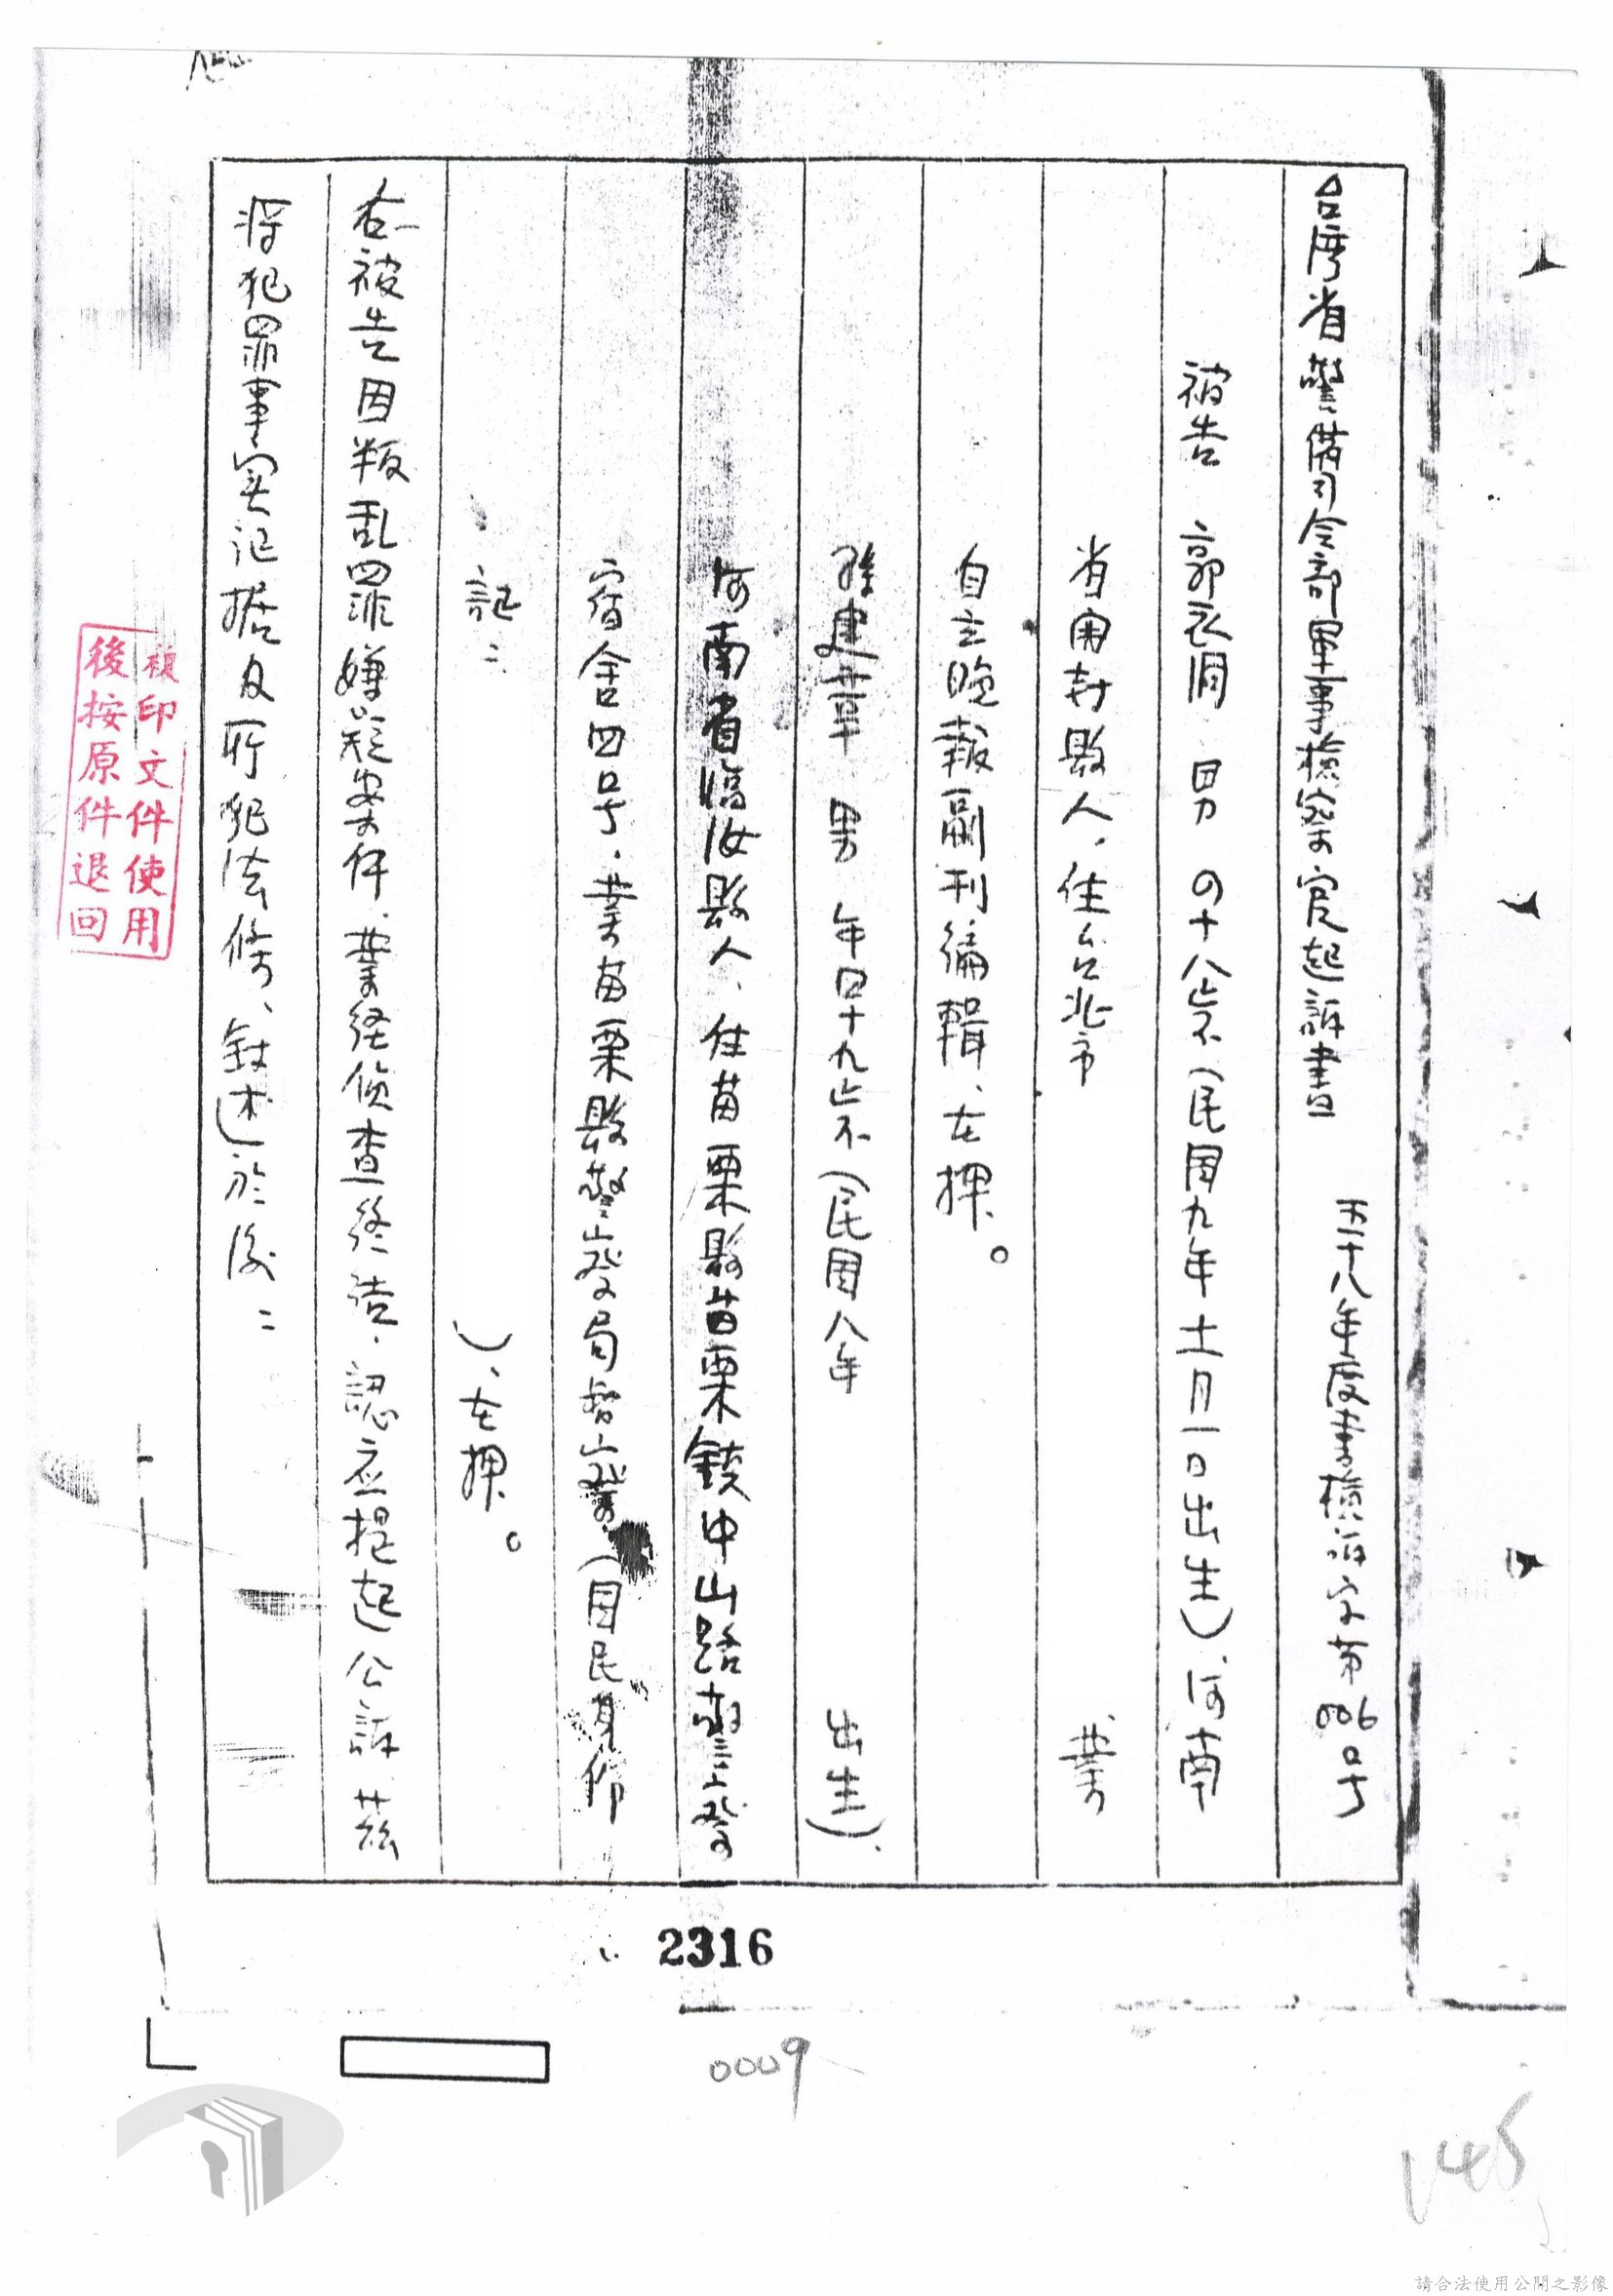 台湾省警備司令部軍事檢察官起訴書 五十八年度書檢訴字第006号
被告 郭衣洞 男 四十八歲(民国九年十一月一日出生)、河南
省開封縣人,住台北市 業
自立晚報副刊編輯、在押。
孫建章 男 年四十九歲(民国八年 出生)、
河南省臨汝縣人,住苗栗縣苗栗鎮中山路警察
宿舍四号,業苗栗縣警察局督察(国民身份
証: )、在押。
右被告因叛乱罪嫌疑案件、業経偵查終结,認应提起公訴、茲
將犯罪事实证据及所犯法條、敍述於後:
複印文件使用
後按原件退回
2316
0009
145
請合法使用公開之影像